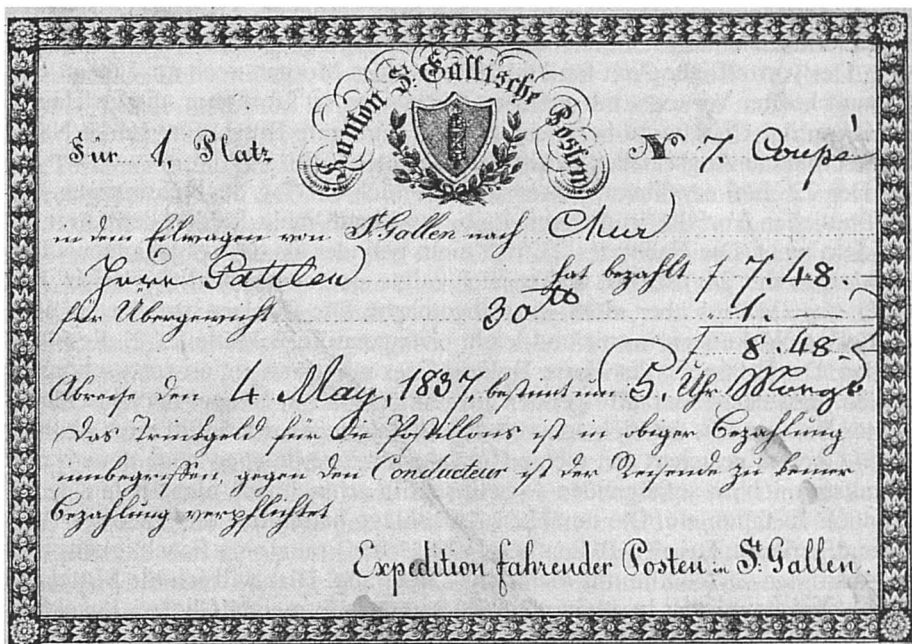 Kanton St. Gallische Posten
Für 1. Platz
N 7. Coupé
in dem Eilwagen von St Gallen nach Chur
Herr hat bezahlt f 7. 48.
für Übergewicht 30 1.
f 8. 48.
Abreise den 4 May, 1837, bestimt um 5. Uhr Morgs
Das Trinkgeld für die Postillons ist in obiger Bezahlung
inbegriffen, gegen den Conducteur ist der Reisende zu keiner
Bezahlung verpflichtet
Expedition fahrender Posten in St. Gallen.